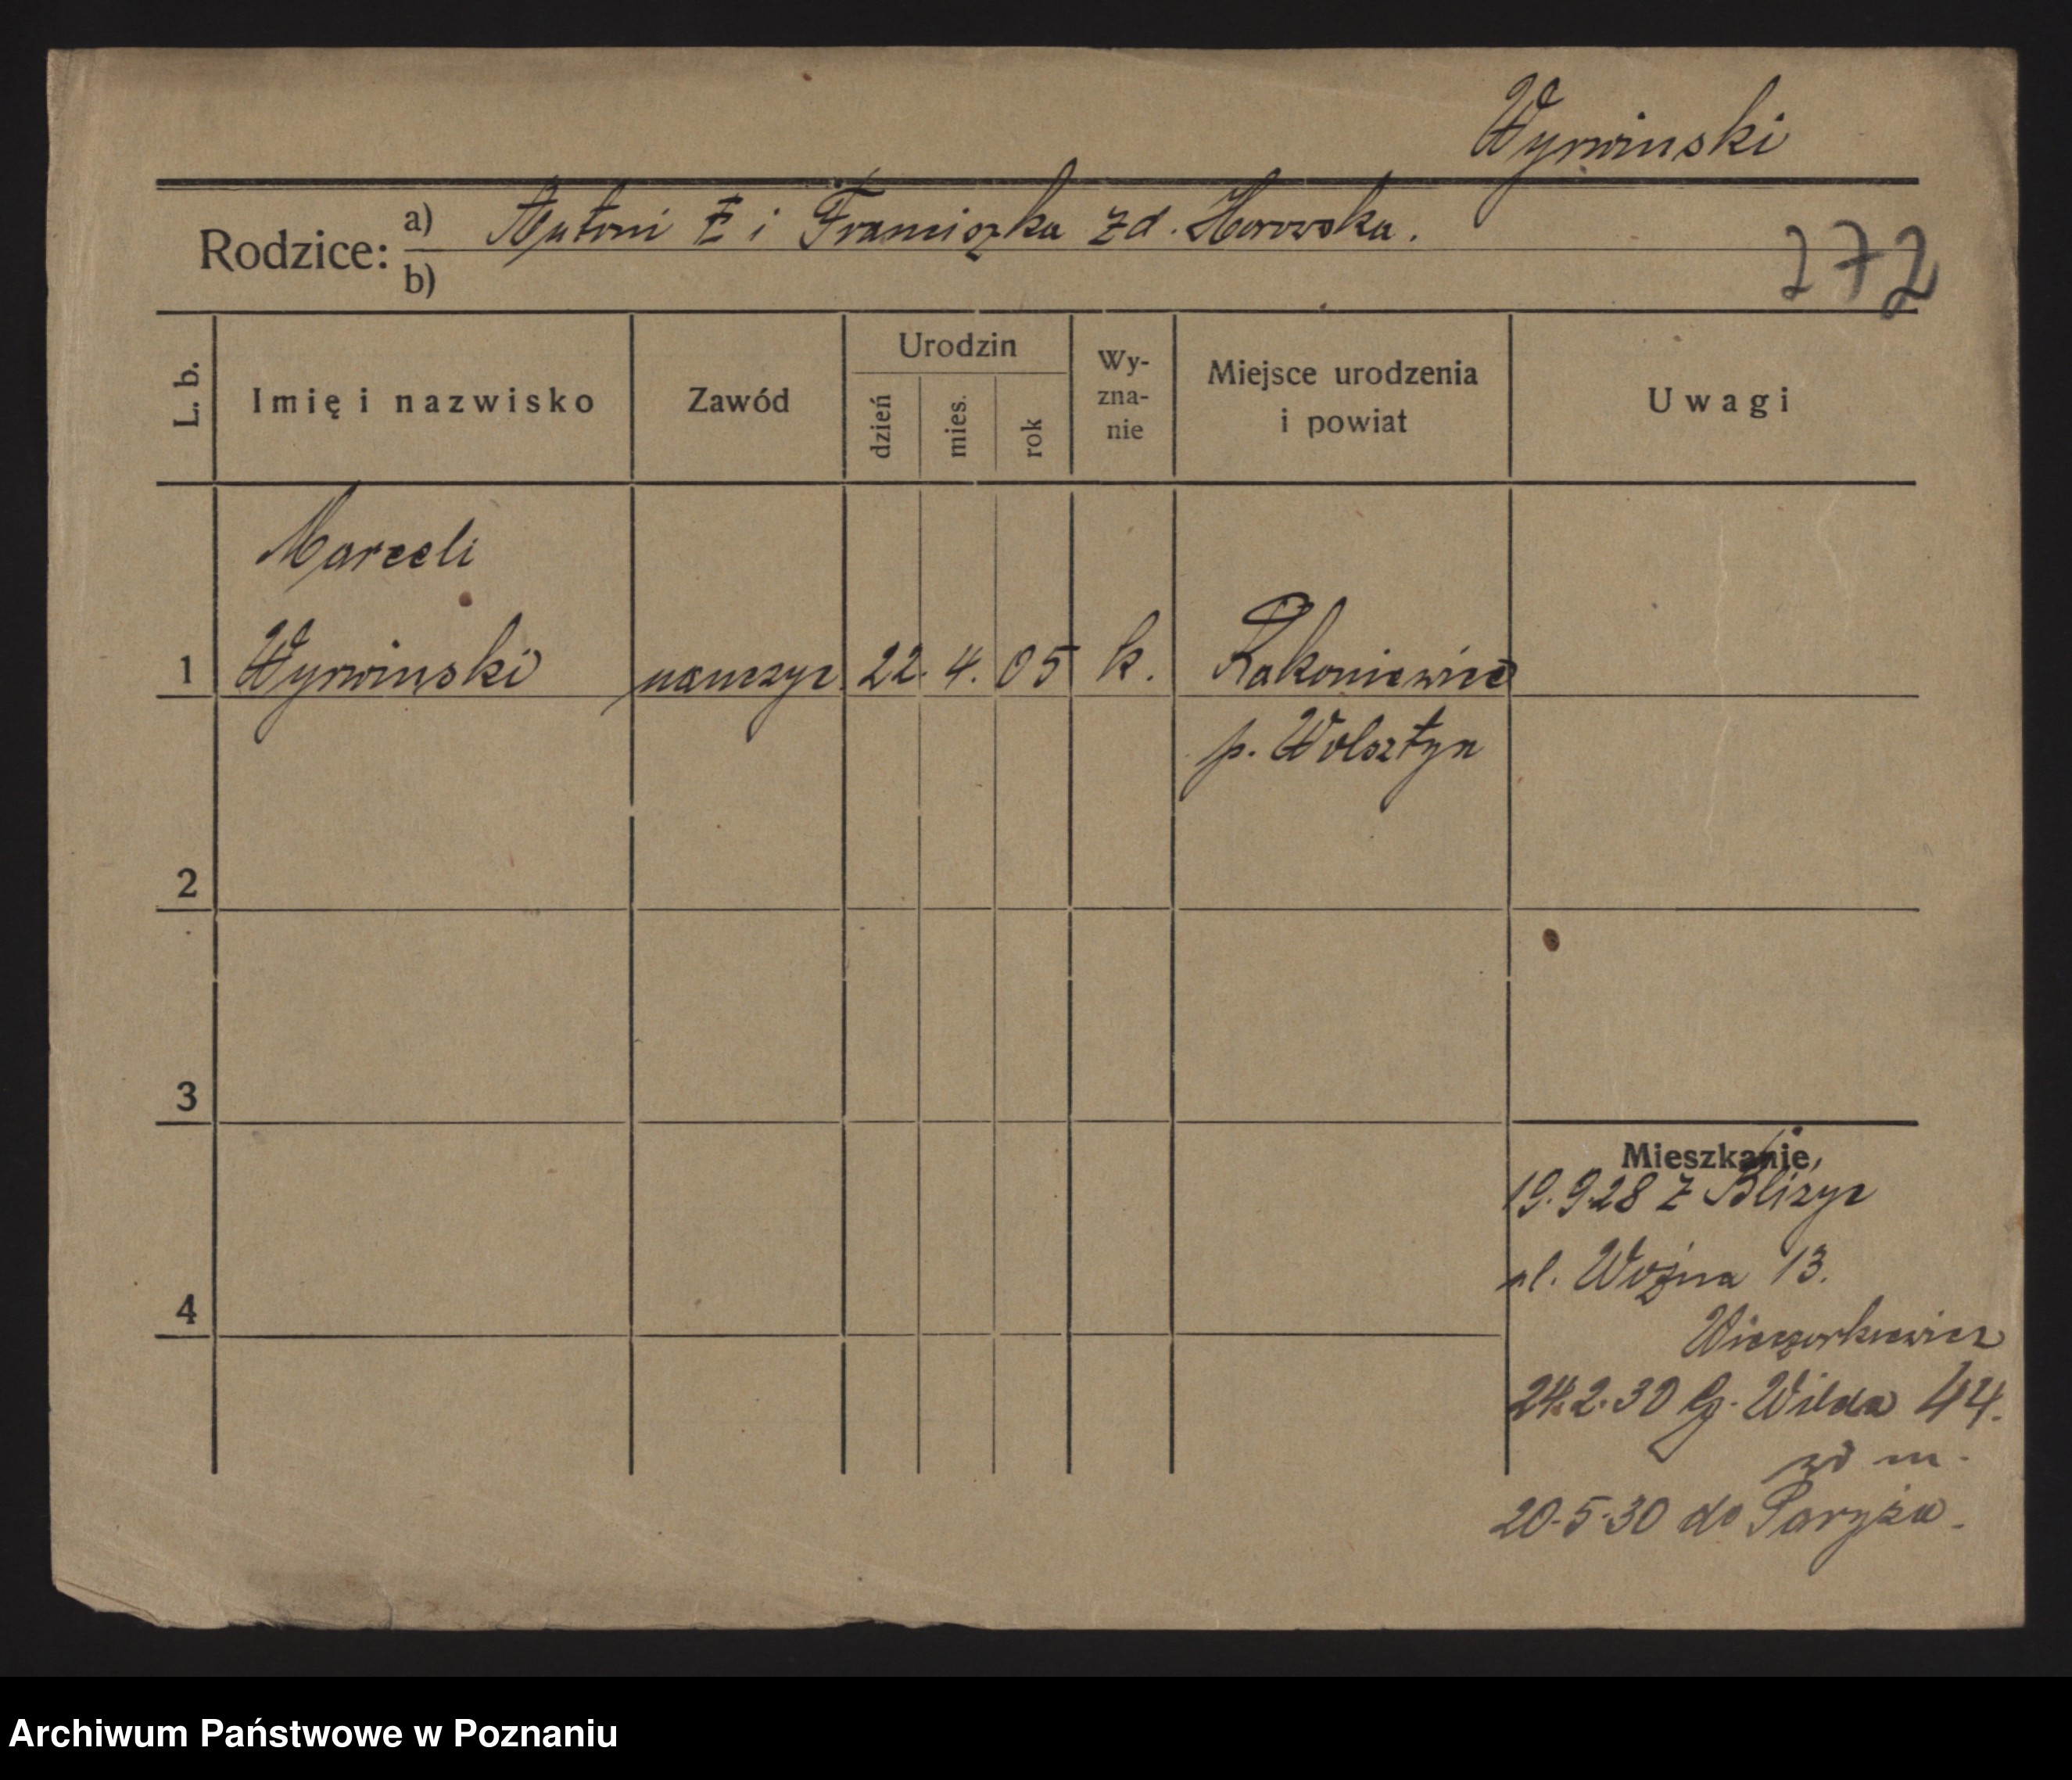 Wyrwinski
Rodzice: a) Antoni i Franciszka zd.
b)
272
L. b.
Imię i nazwisko
Zawód
Urodzin
dzień
mies.
rok
Wy-
zna-
nie
Miejsce urodzenia
i powiat
Uwagi
Marceli
1 Wyrwinski nauczyc. 22. 4. 05 k. Rakoniewice
p. Wolsztyn
2
3
4
Mieszkanie
19.9.28 z
ul. Woźna 13.
Wieczorkiewicz
24.2.30 G. Wilda 44.
20.5.30 do Paryża.
Archiwum Państwowe w Poznaniu